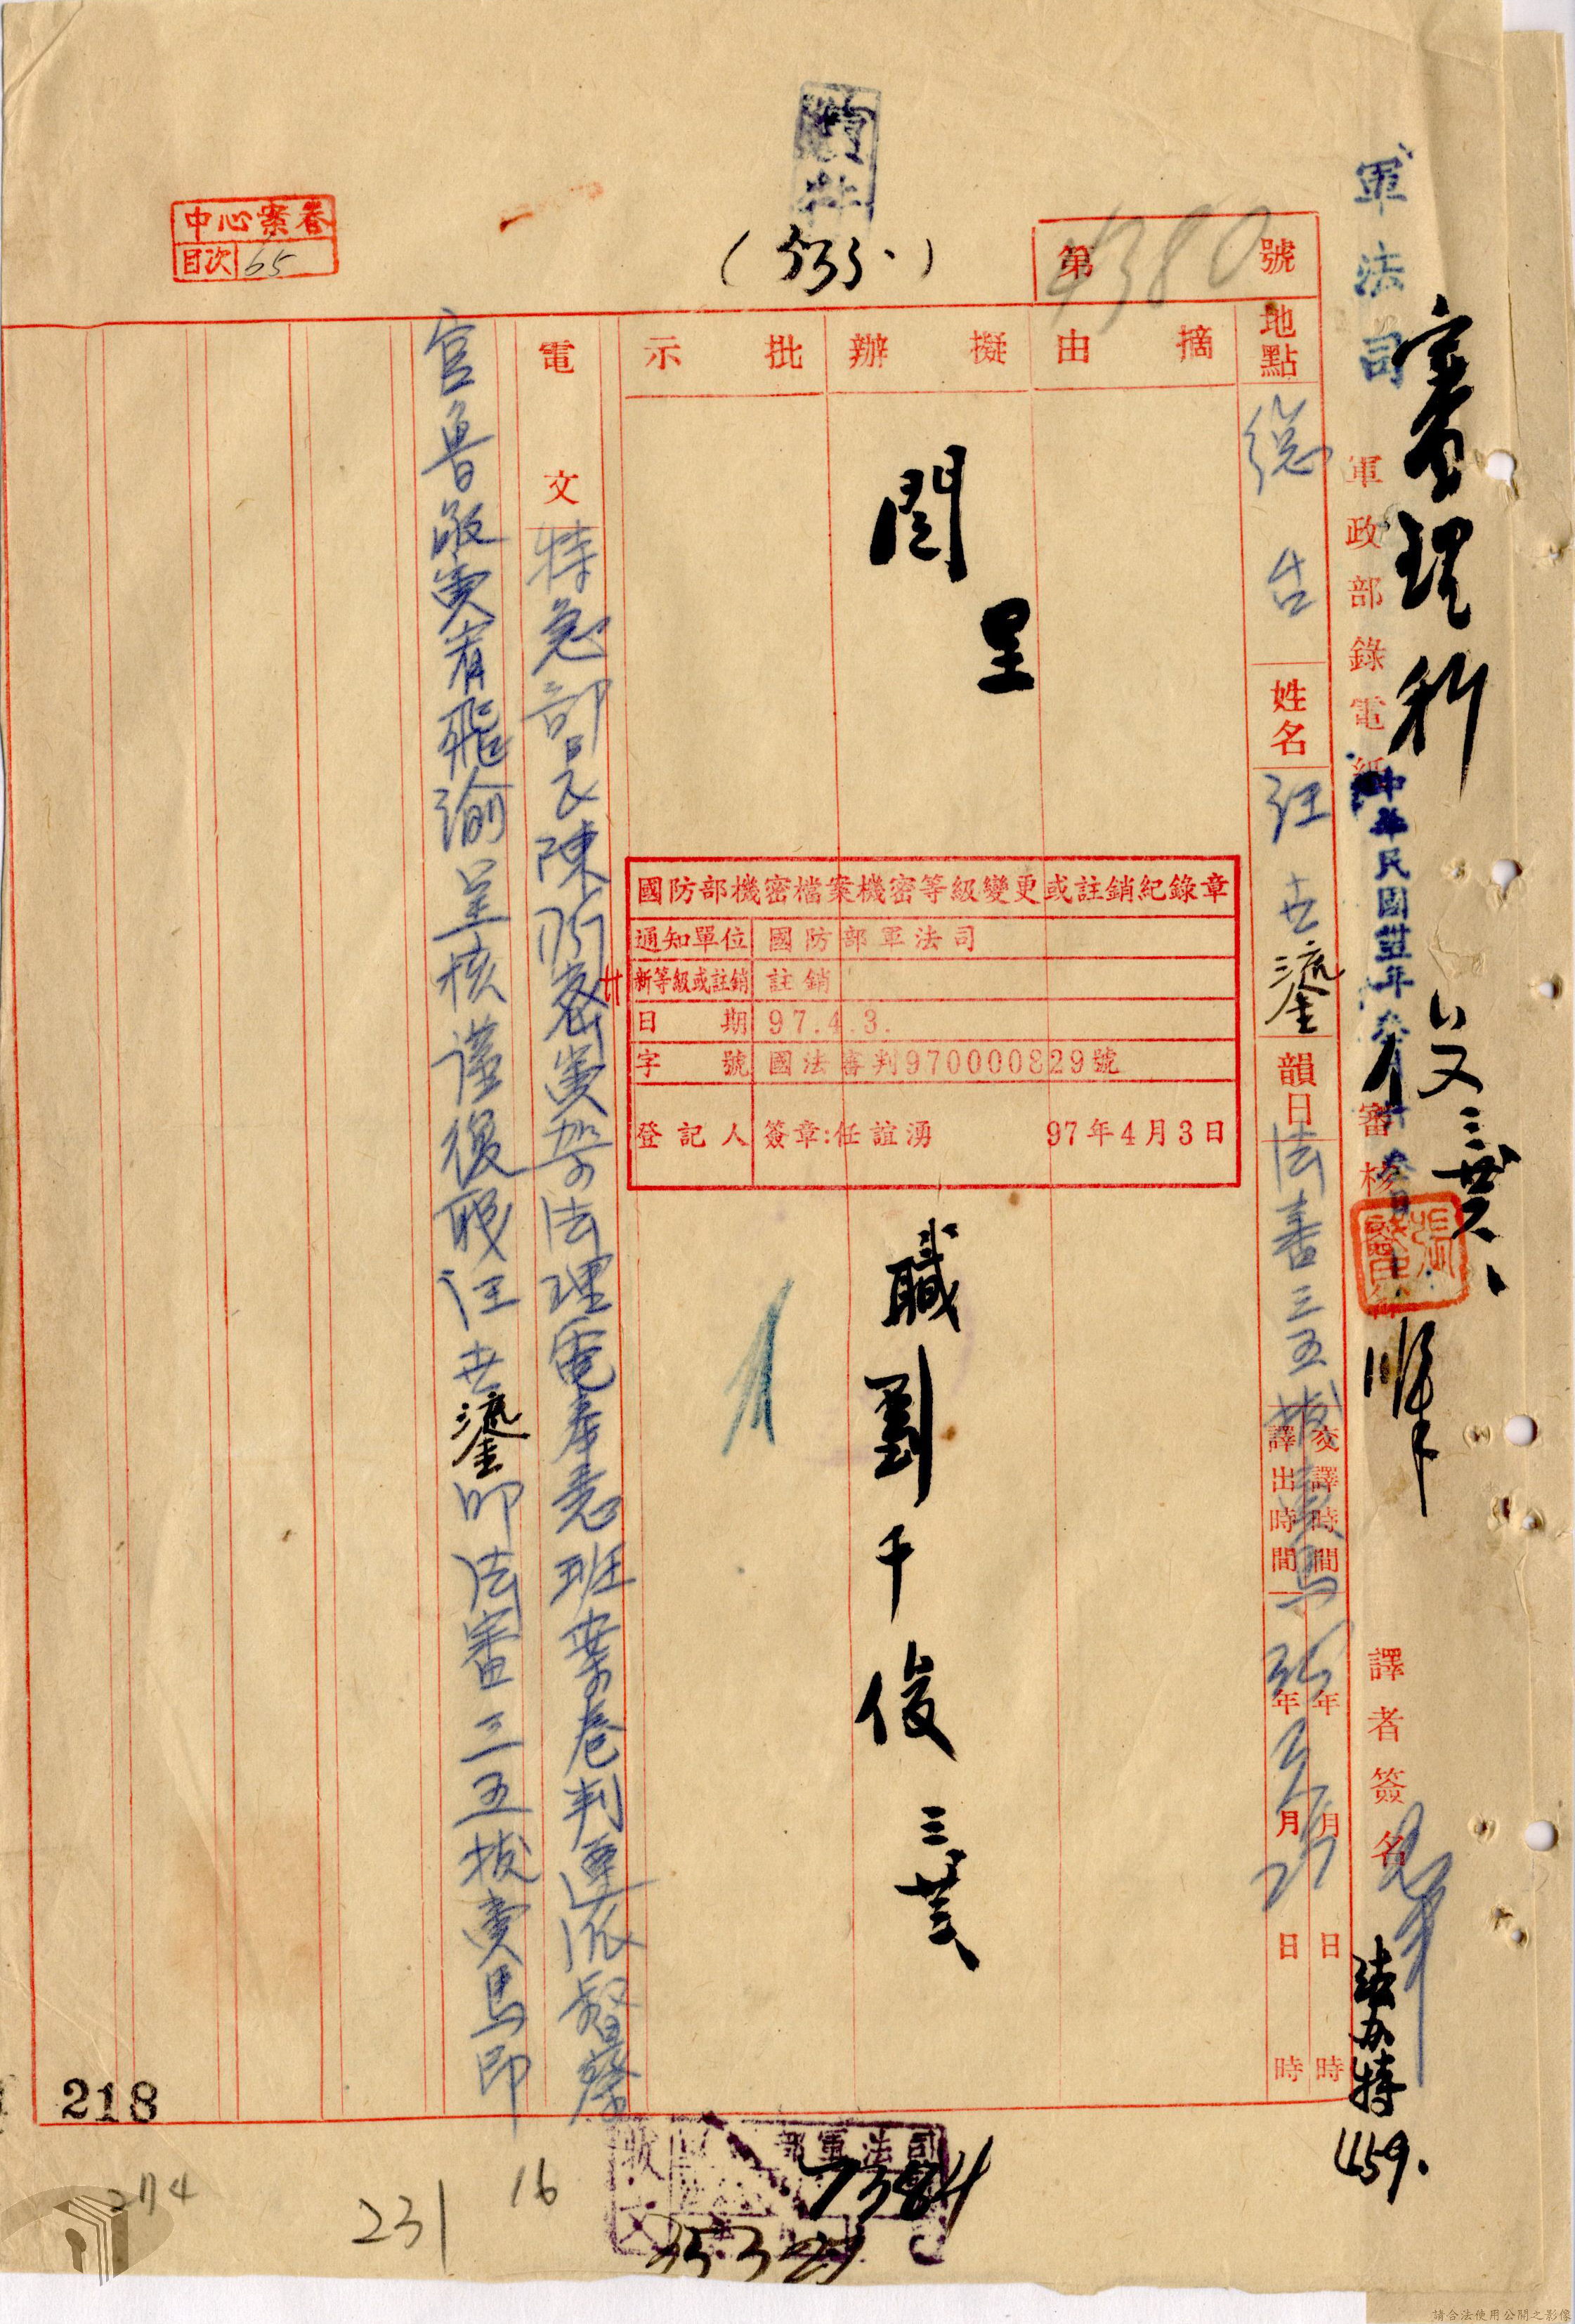 審理科
軍法司
軍政部錄電紙
審核
譯者簽名
法办特
459.
第4380號
地點 總台
姓名 汪世鎏
韻日 法善三五拔寅馬
交譯時間 年 月 日 時
譯出時間 35年3月25日 時
摘由
擬辦
批示
(535.)
呈
閱
職劉千俊
國防部機密檔案機密等級變更或註銷紀錄章
通知單位 國防部軍法司
新等級或註銷 註銷
日期 97.4.3.
字號 國法審判970000829號
登記人 簽章:任誼湧 97年4月3日
電文
特急部長陳 密寅 法理電奉悉班案卷判遵派督察
官魯 寅有飛渝呈核謹復職汪世鎏叩法審三五拔寅馬印
中心案卷
目次 65
218
274
231
16
軍法司
收文
7384
35 3 27
請合法使用公開之影像